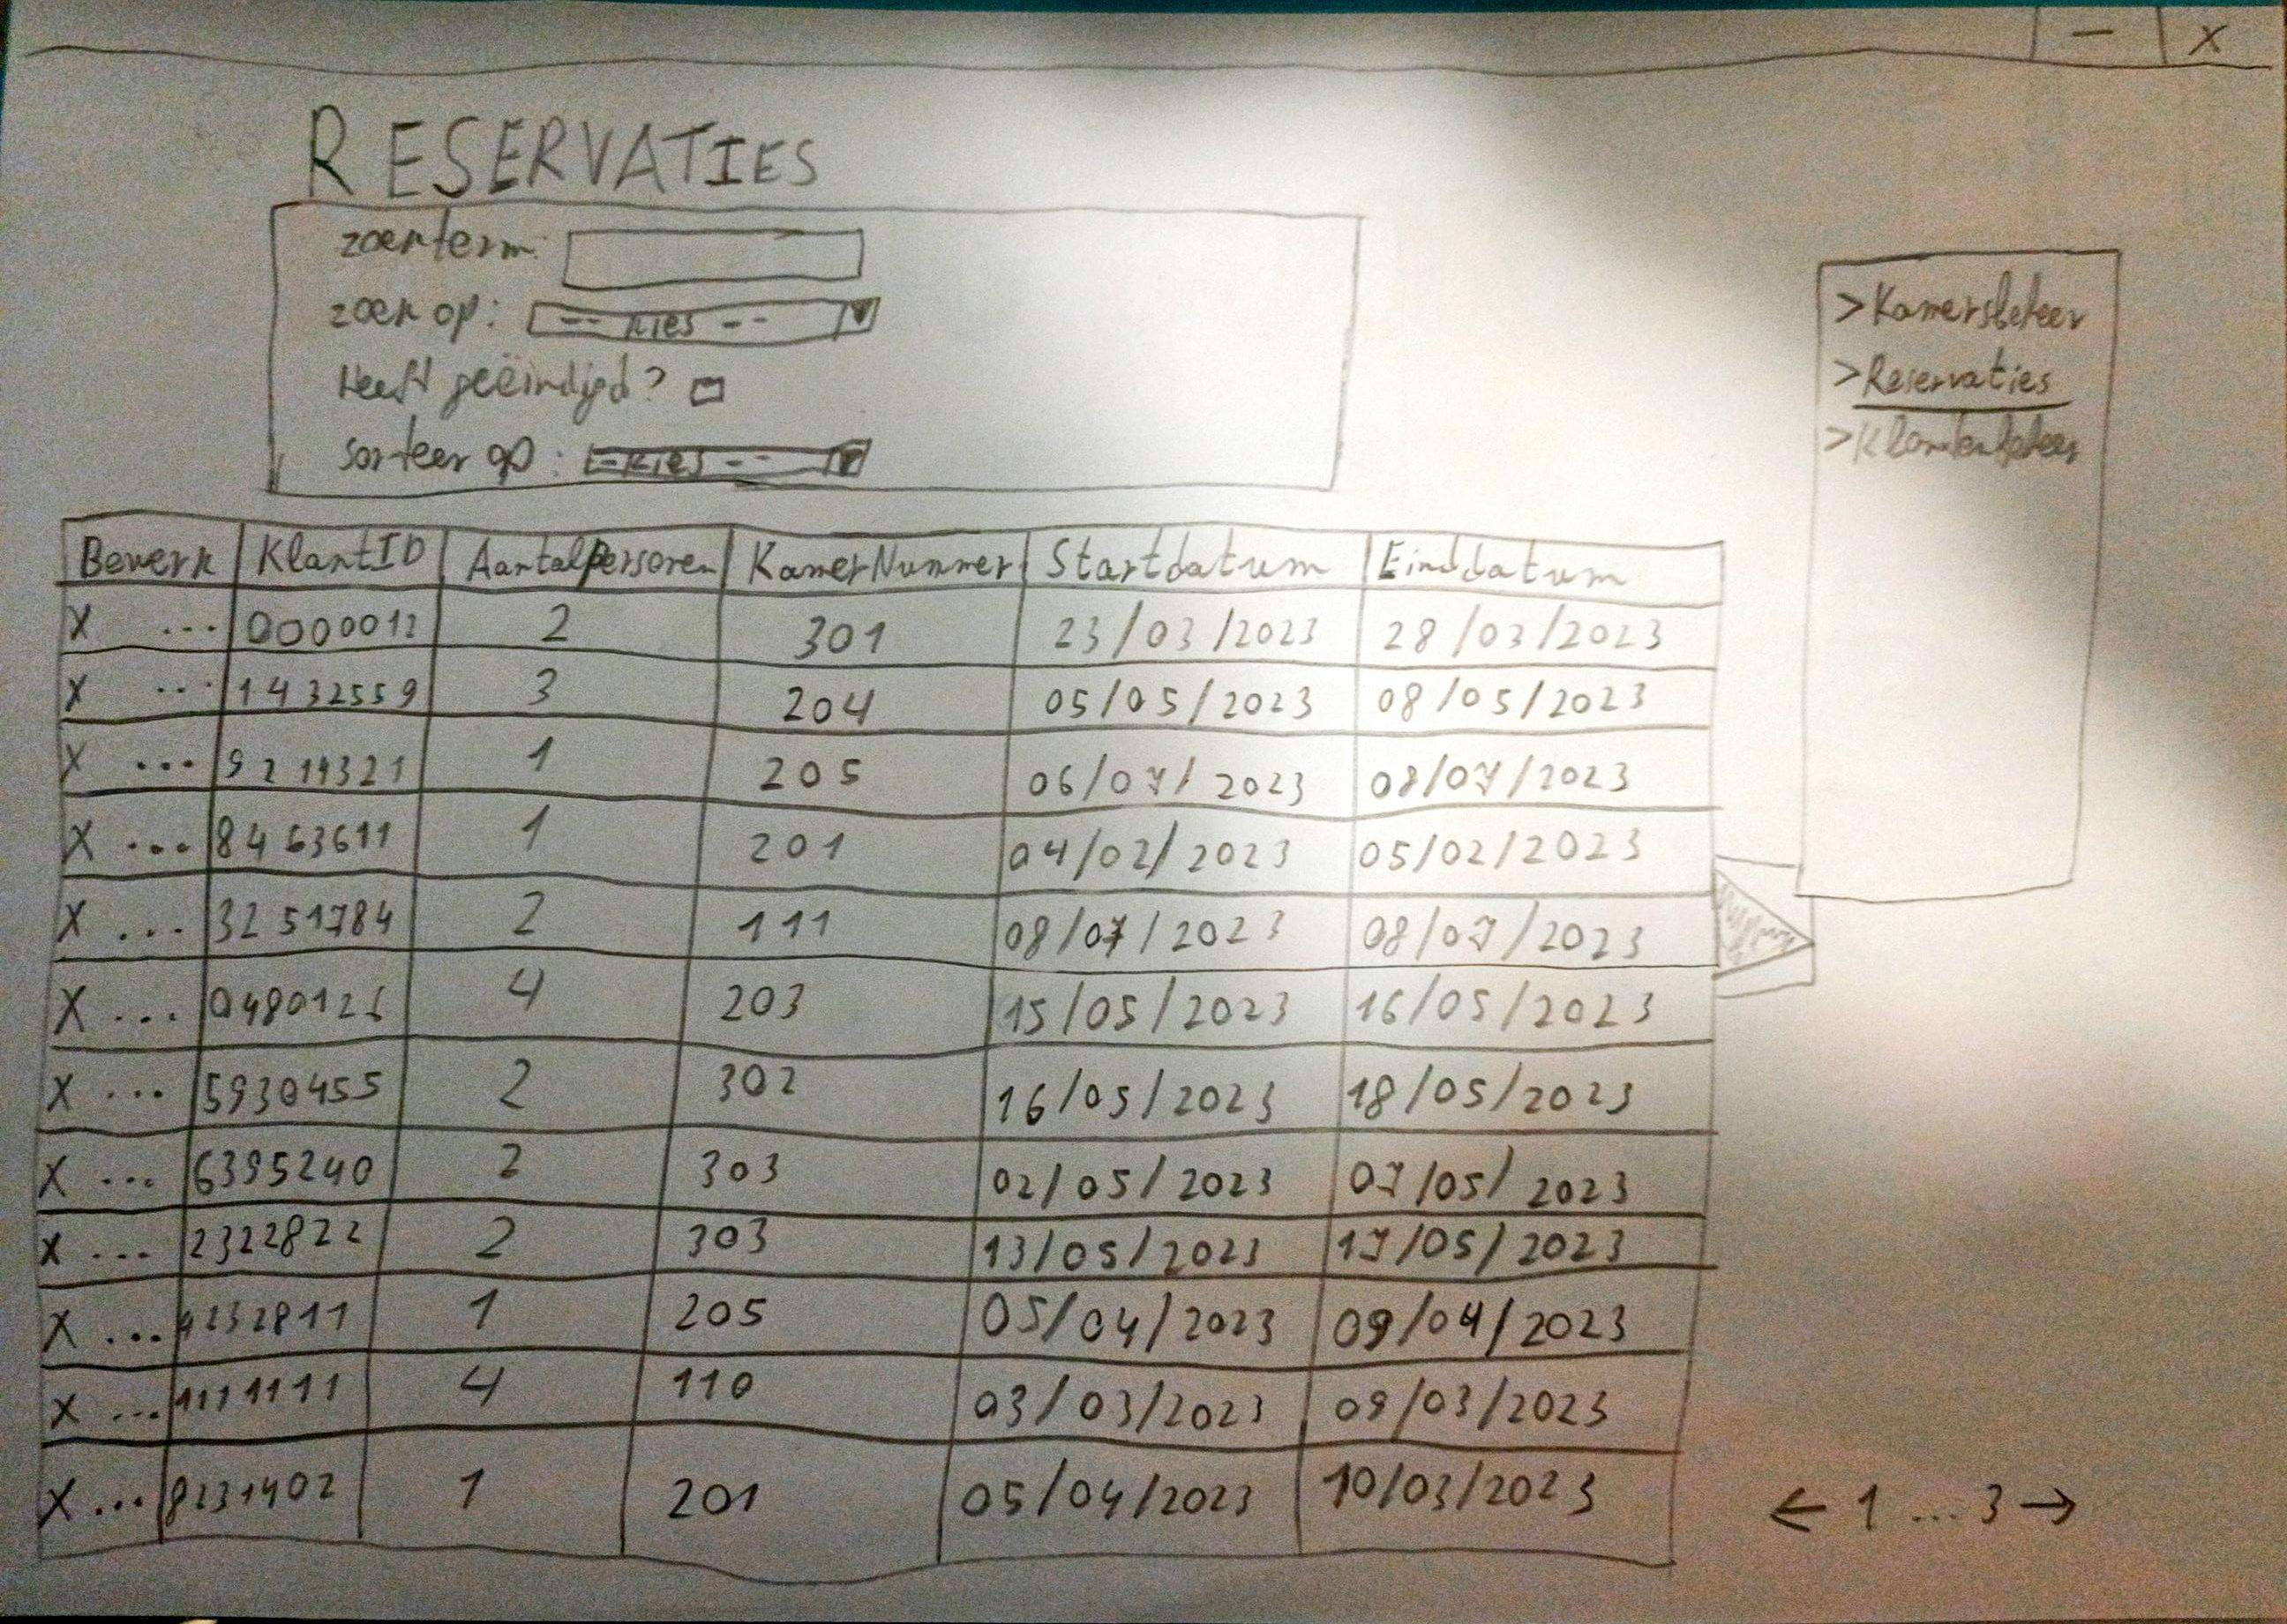 - X
RESERVATIES
zoekterm:
zoek op: -- Kies --
Heeft geëindigd?
sorteer op: -- Kies --
>Kamersbeheer
>Reservaties
>Klantenbeheer
Bewerk KlantID AantalPersonen KamerNummer Startdatum Einddatum
X ... 0000012 2 301 23/03/2023 28/03/2023
X ... 1432559 3 204 05/05/2023 08/05/2023
X ... 9214321 1 205 06/07/2023 08/07/2023
X ... 8463611 1 201 04/02/2023 05/02/2023
X ... 3251784 2 111 08/07/2023 08/07/2023
X ... 0480126 4 203 15/05/2023 16/05/2023
X ... 5930455 2 302 16/05/2023 18/05/2023
X ... 6395240 2 303 02/05/2023 07/05/2023
X ... 2322822 2 303 13/05/2023 17/05/2023
X ... 4232811 1 205 05/04/2023 09/04/2023
X ... 1111111 4 110 03/03/2023 09/03/2023
X ... 8231402 1 201 05/04/2023 10/03/2023
← 1 ... 3 →